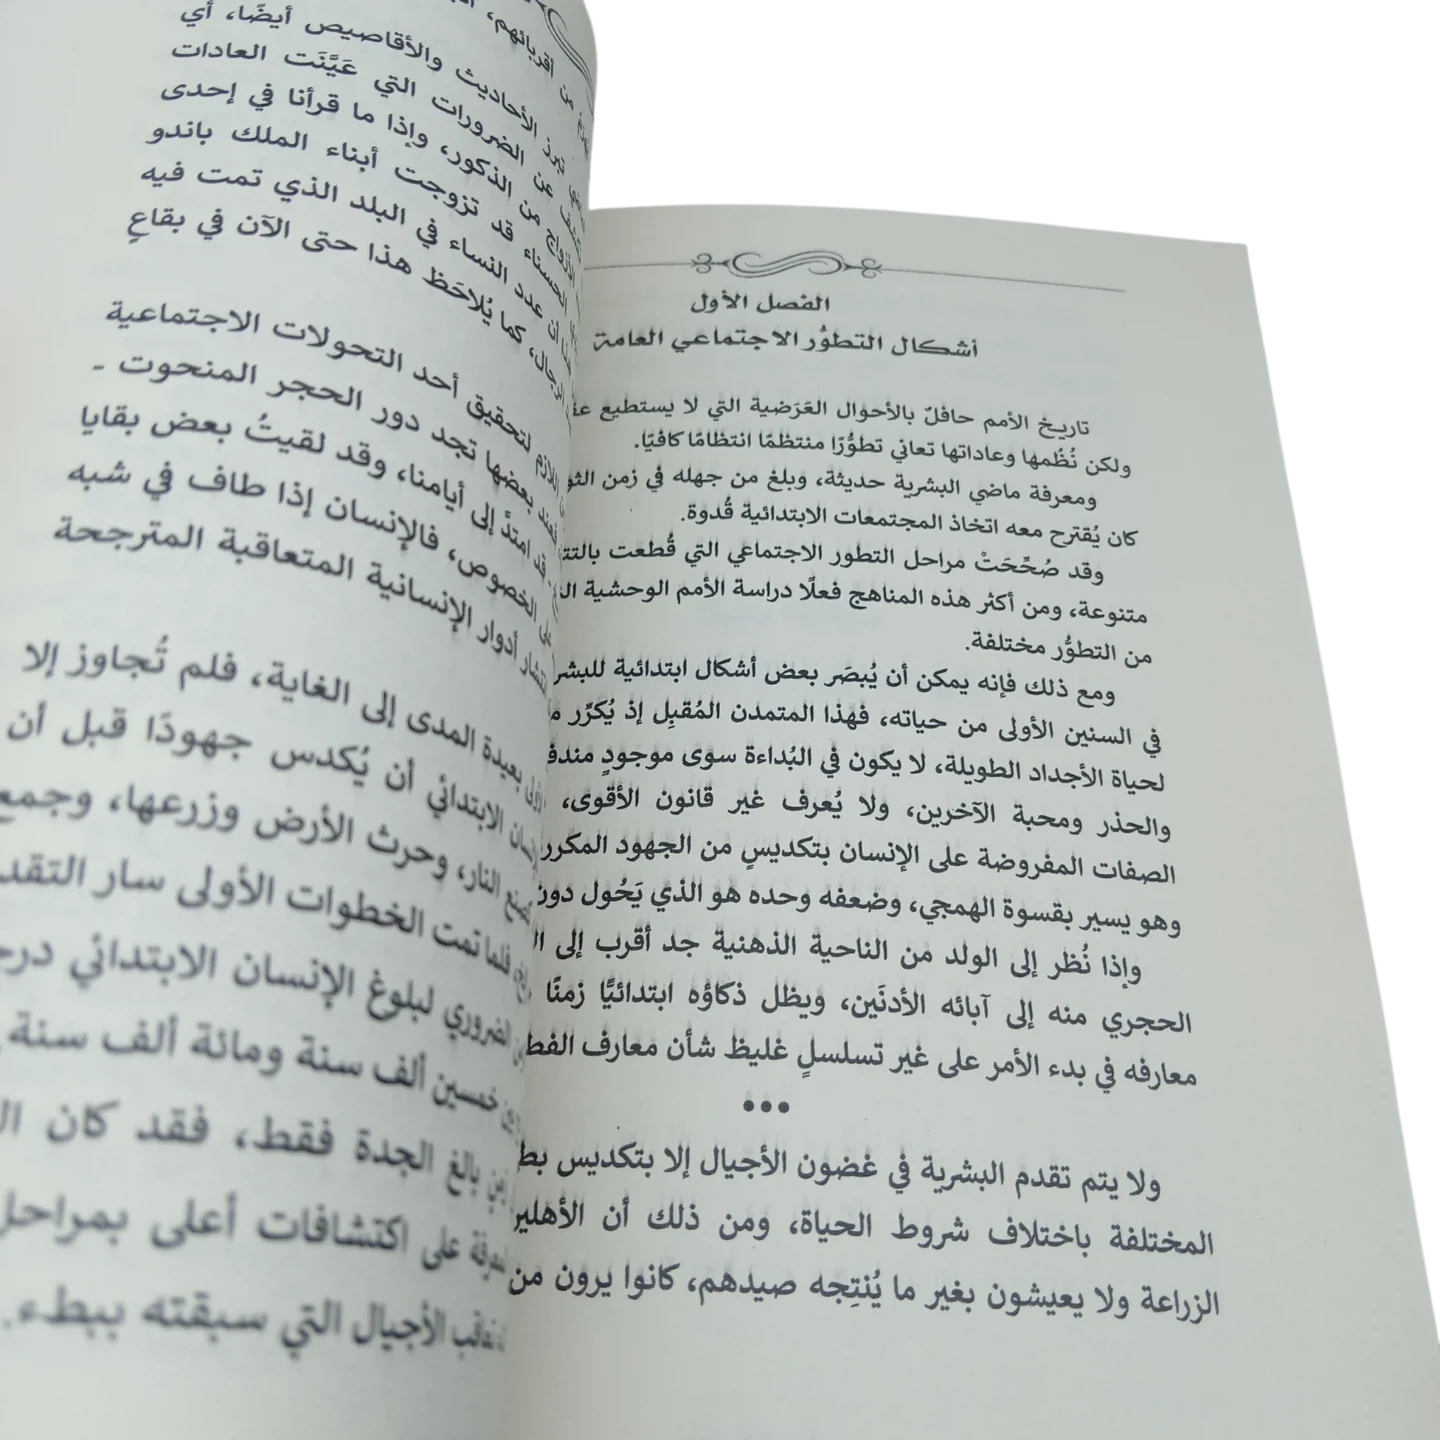 الفصل الأول
أشكال التطوُّر الاجتماعي العامة
تاريخ الأمم حافلٌ بالأحوال العَرَضية التي لا يستطيع
ولكن نُظُمها وعاداتها تعاني تطوُّرًا منتظمًا انتظامًا كافيًا.
ومعرفة ماضي البشرية حديثة، وبلغ من جهله في زمن
كان يُقترح معه اتخاذ المجتمعات الابتدائية قُدوة.
وقد صُحِّحَتْ مراحل التطور الاجتماعي التي قُطعت
متنوعة، ومن أكثر هذه المناهج فعلًا دراسة الأمم الوحشية
من التطوُّر مختلفة.
ومع ذلك فإنه يمكن أن يُبصَر بعض أشكال ابتدائية
في السنين الأولى من حياته، فهذا المتمدن المُقبِل إذ يُكَرِّر
لحياة الأجداد الطويلة، لا يكون في البُداءة سوى موجودٍ
والحذر ومحبة الآخرين، ولا يُعرف غير قانون الأقوى،
الصفات المفروضة على الإنسان بتكديسٍ من الجهود
وهو يسير بقسوة الهمجي، وضعفه وحده هو الذي يَحُول دون
وإذا نُظر إلى الولد من الناحية الذهنية جد أقرب إلى
الحجري منه إلى آبائه الأدنَين، ويظل ذكاؤه ابتدائيًّا زمنًا
معارفه في بدء الأمر على غير تسلسلٍ غليظ شأن معارف
•••
ولا يتم تقدم البشرية في غضون الأجيال إلا بتكديس
المختلفة باختلاف شروط الحياة، ومن ذلك أن
الزراعة ولا يعيشون بغير ما يُنتِجه صيدهم، كانوا يرون من
من أقربائهم،
تبرز الأحاديث والأقاصيص أيضًا، أي
عن الضرورات التي عَيَّنَت العادات
من الذكور، وإذا ما قرأنا في إحدى
الحسناء قد تزوجت أبناء الملك باندو
عدد النساء في البلد الذي تمت فيه
الرجال، كما يُلاحَظ هذا حتى الآن في بقاعٍ
اللازم لتحقيق أحد التحولات الاجتماعية
بعضها تجد دور الحجر المنحوت -
قد امتدَّ إلى أيامنا، وقد لقيتُ بعض بقايا
على الخصوص، فالإنسان إذا طاف في شبه
أدوار الإنسانية المتعاقبة المترجحة
بعيدة المدى إلى الغاية، فلم تُجاوز إلا
الابتدائي أن يُكدس جهودًا قبل أن
النار، وحرث الأرض وزرعها، وجمع
فلما تمت الخطوات الأولى سار
الضروري لبلوغ الإنسان الابتدائي
خمسين ألف سنة ومائة ألف سنة
بالغ الجدة فقط، فقد كان
على اكتشافات أعلى بمراحل
الأجيال التي سبقته ببطء.